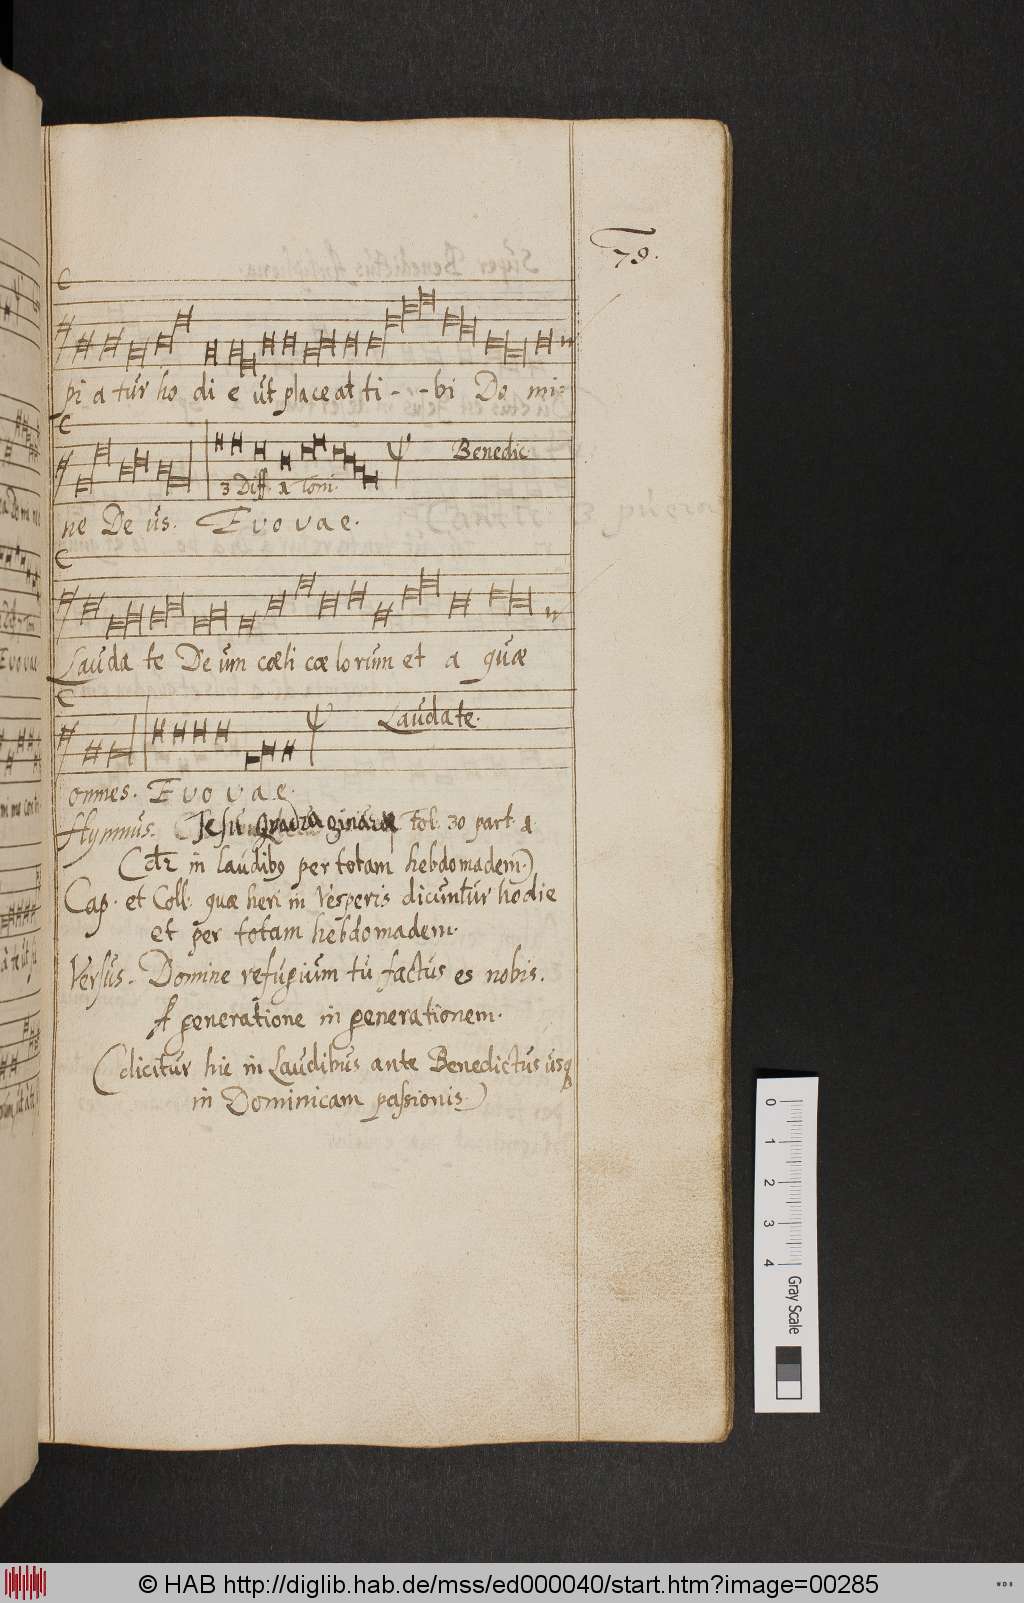 78.
pi a tur ho di e ut placeat ti - - bi Do mi=
Benedic
3 Diff. 1 Toni.
ne De us. E v o v a e.
Laudate De um cæli cæ lo rum et a quæ
Laudate.
omnes. E v o v a e.
Hymnus. Jesu Quadragenariæ fol. 30 part. 1
(Cătr in laudibq per totam hebdomadem.)
Cap. et Coll. quæ heri in Vesperis dicuntur hodie
et per totam hebdomadem.
Versus. Domine refugium tu factus es nobis.
A generatione in generationem.
(dicitur hic in Laudibus ante Benedictus usq
in Dominicam passionis.)
0 1 2 3 4 Gray Scale
© HAB http://diglib.hab.de/mss/ed000040/start.htm?image=00285